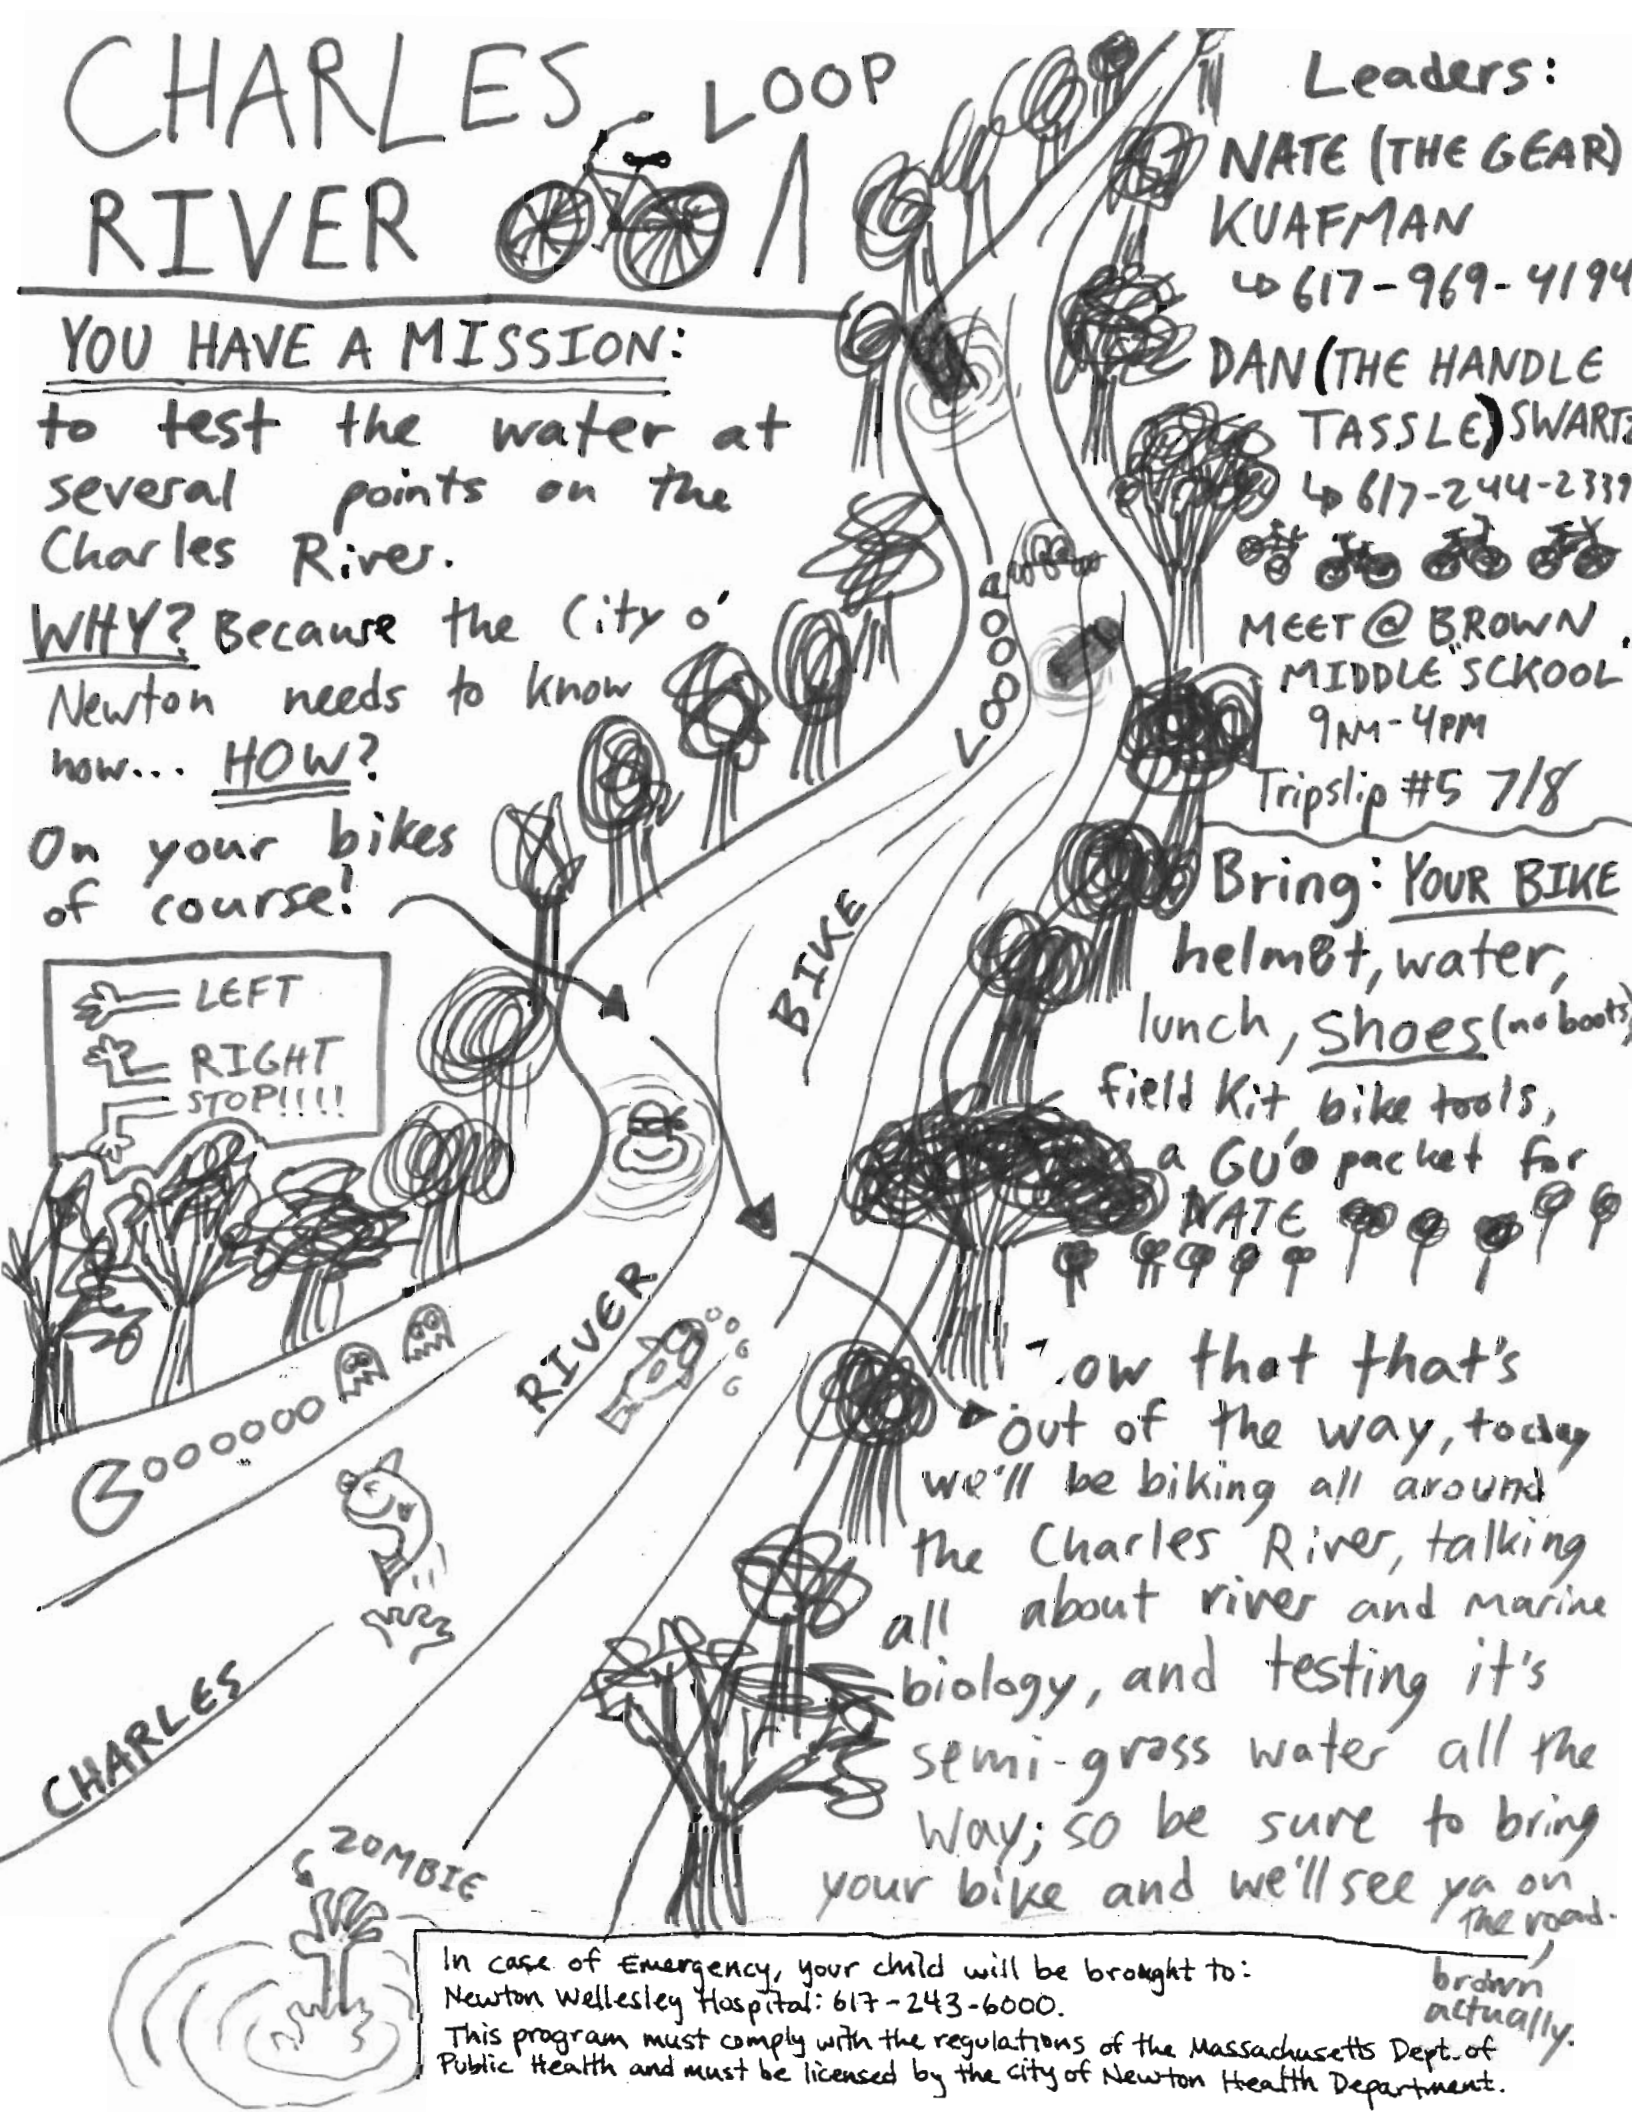 CHARLES
RIVER
LOOP
YOU HAVE A MISSION:
to test the water at
several points on the
Charles River.
WHY? Because the City o'
Newton needs to know
now... HOW?
On your bikes
of course!
LEFT
RIGHT
STOP!!!!
Leaders:
NATE (THE GEAR)
KUAFMAN
↳ 617-969-4194
DAN (THE HANDLE
TASSLE) SWARTZ
↳ 617-244-2339
MEET @ BROWN
MIDDLE SCKOOL
9AM-4PM
Tripslip #5 7/8
Bring: YOUR BIKE
helmet, water,
lunch, shoes (no boots)
field kit, bike tools,
a GU'o packet for
NATE
ow that that's
out of the way, today
we'll be biking all around
the Charles River, talking
all about river and marine
biology, and testing it's
semi-gross water all the
way; so be sure to bring
your bike and we'll see ya on
the road.
brown
actually.
CHARLES
RIVER
BIKE
LOOP
ZOMBIE
In case of Emergency, your child will be brought to:
Newton Wellesley Hospital: 617-243-6000.
This program must comply with the regulations of the Massachusetts Dept. of
Public Health and must be licensed by the city of Newton Health Department.